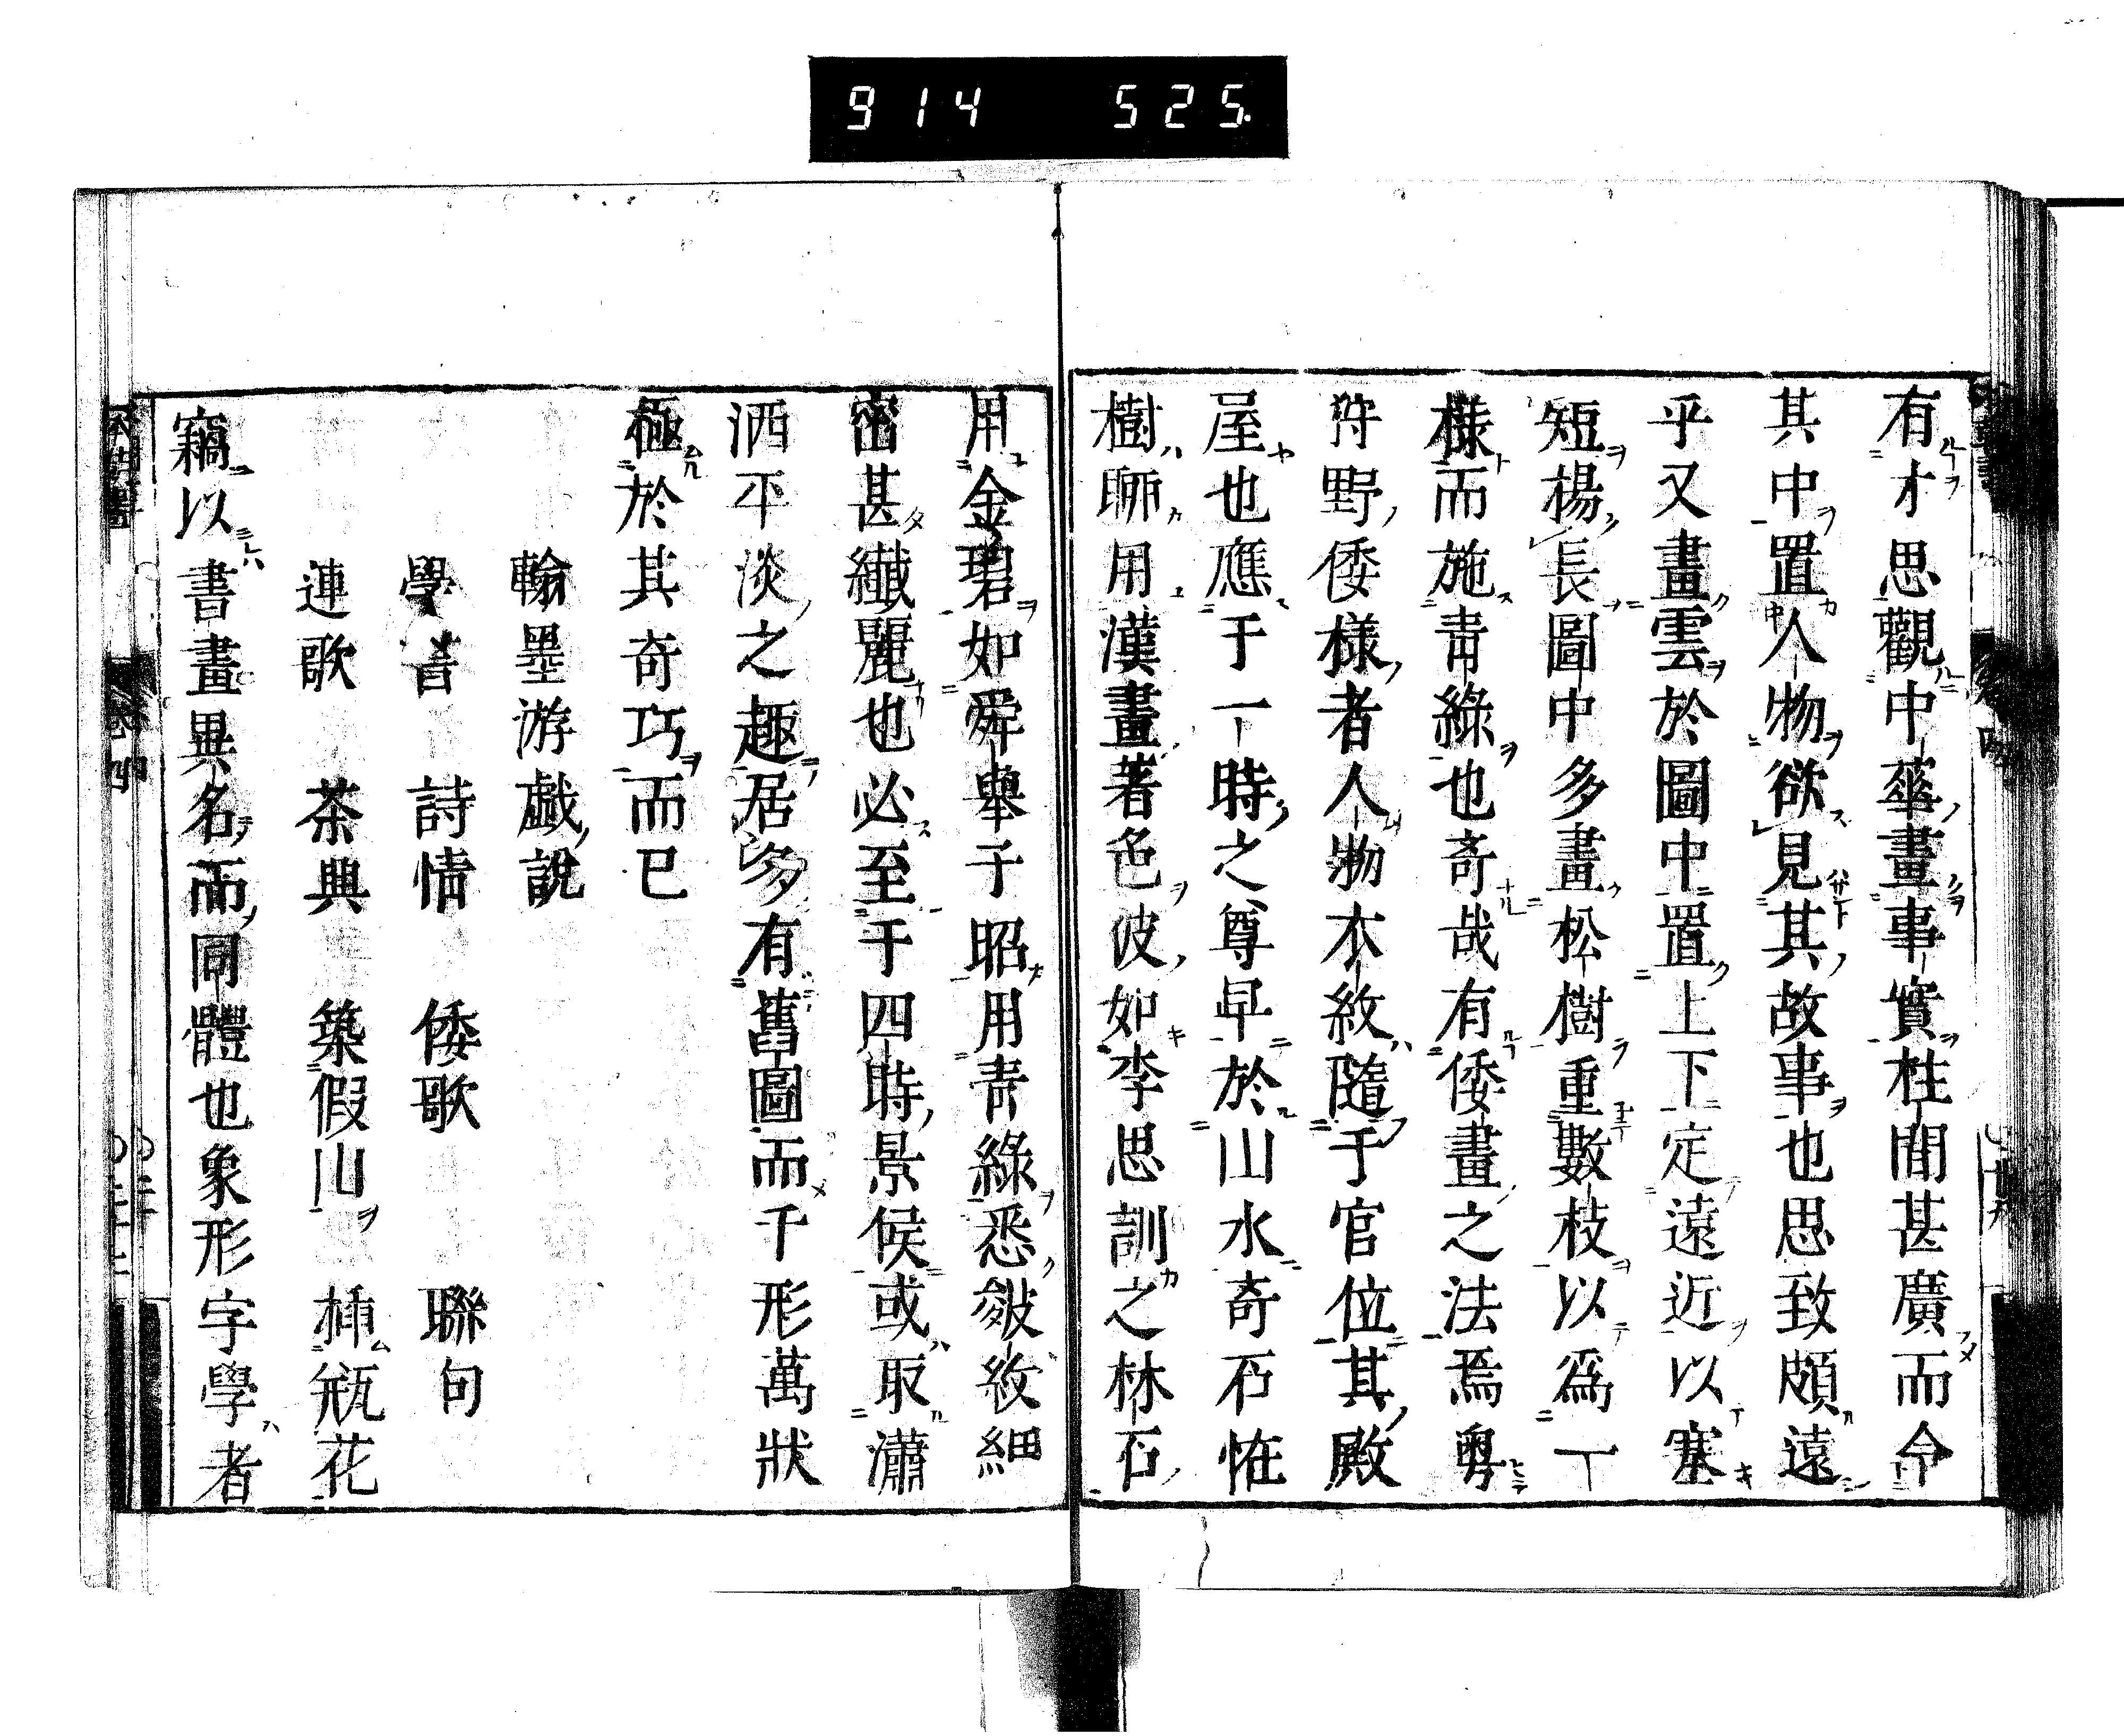 914 525.
有才思觀中華畫事實柱間甚廣而令
其中置人物欲見其故事也思致頗遠
乎又畫雲於圖中置上下定遠近以塞
短楊長圖中多畫松樹重數枝以爲一
樣而施青綠也奇哉有倭畫之法焉粤
狩野倭樣者人物衣紋隨于官位其殿
屋也應于一時之尊卑於山水奇石恠
樹聊用漢畫著色彼如李思訓之林石
用金碧如舜舉子昭用青綠悉皴紋細
密甚纎麗也必至于四時景侯或取瀟
洒平淡之趣居多有舊圖而千形萬狀
極於其奇巧而已
翰墨游戯說
學書 詩情 倭歌 聯句
連歌 茶興 築假山 插瓶花
竊以書畫異名而同體也象形字學者